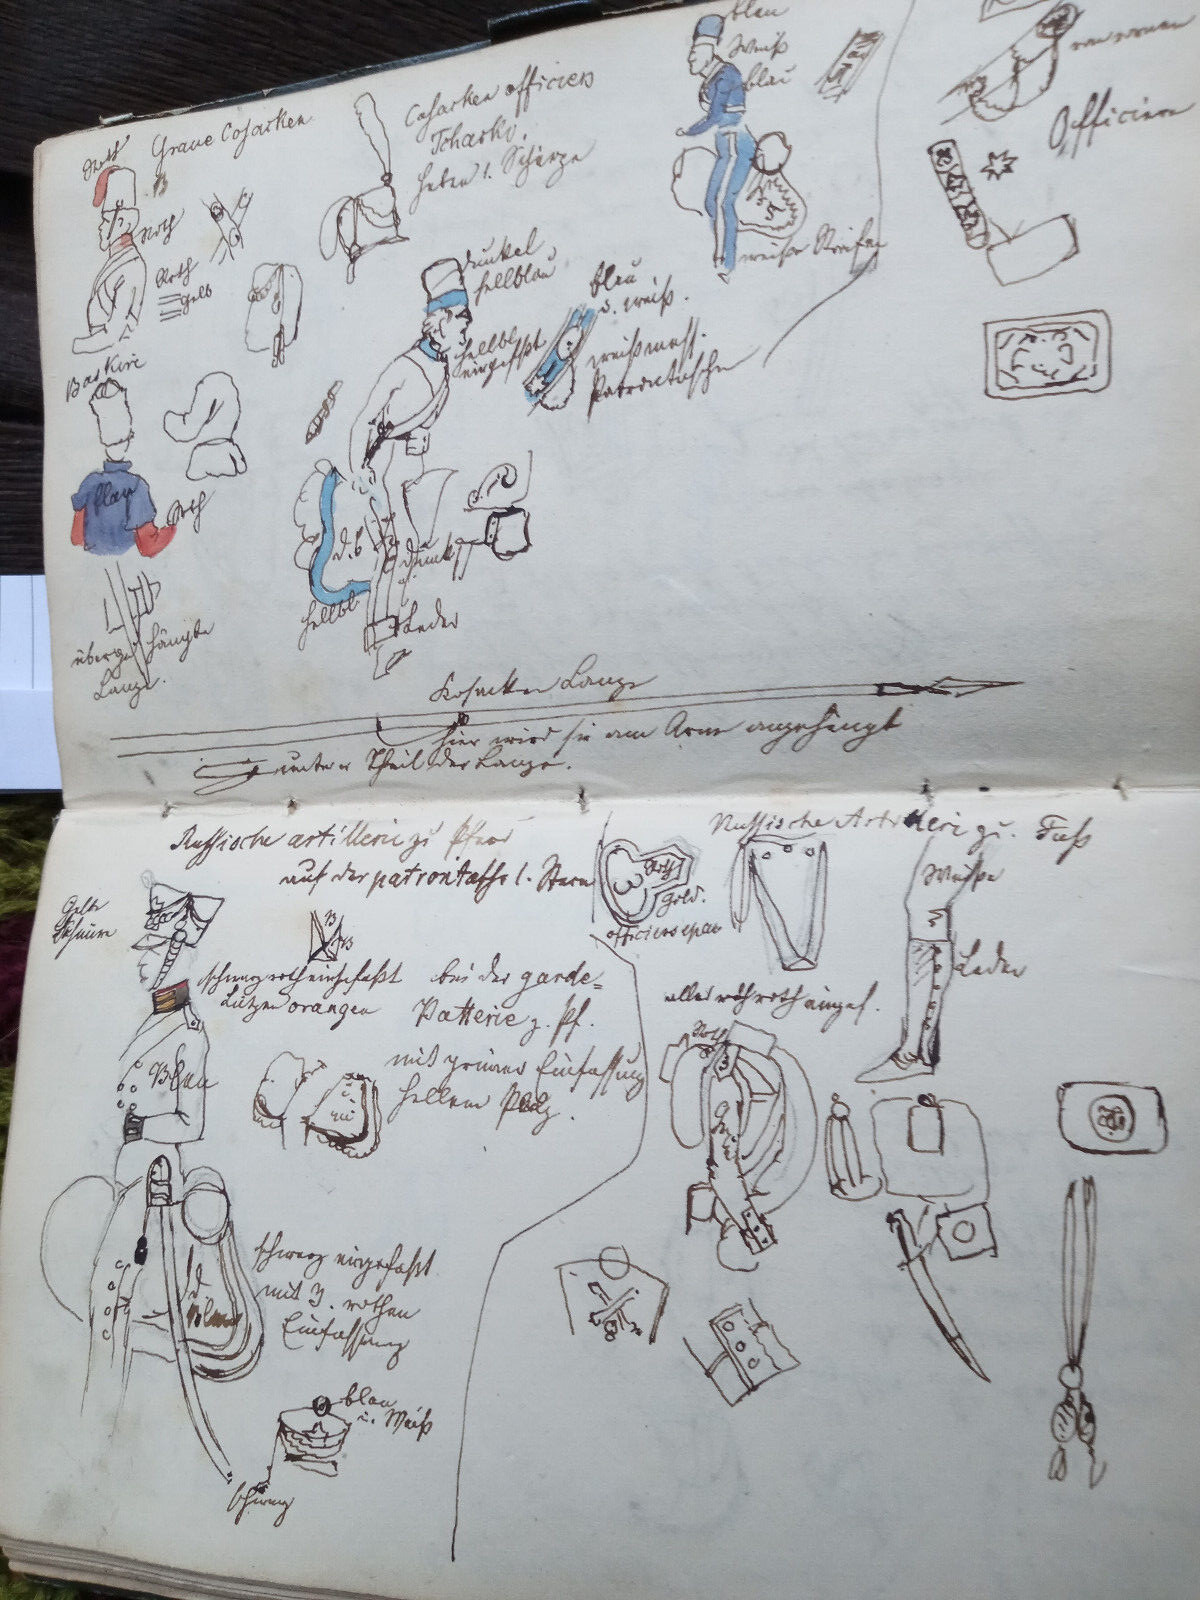 Roth
Graue Cosacken
Roth
Roth
gelb
Baskire
blau
Roth
übergehängte
Lanze.
Cosacken officiers
Tcharki.
haben 1. Schärpe
dunkel
hellblau
hellbl.
eingefaßt
blau
u. weiß.
Patrontasche
d. b
dunk
hellbl.
Leder
blau
Weiß
blau
5
weiße Streifen
Officiere
Kosacken Lanze
hier wird sie am Arme angehängt
unterer Theil der Lanze.
Russische artillerie zu Pferd
auf der patrontasche 1. Stern
Gelbe
Schnüre
schwarz roth eingefaßt
Litzen orangen
bei der garde-
Batterie z. Pf.
mit grüner Einfassung
hellem Pelz.
Blau
d.
Blau
schwarz eingefaßt
mit 3. rothen
Einfassung
blau
u. Weiß
schwarz
Russische Artillerie zu. Fuß
Roth
Gold.
officiers epau
Weiße
Leder
alles roth eingef.
Roth
3